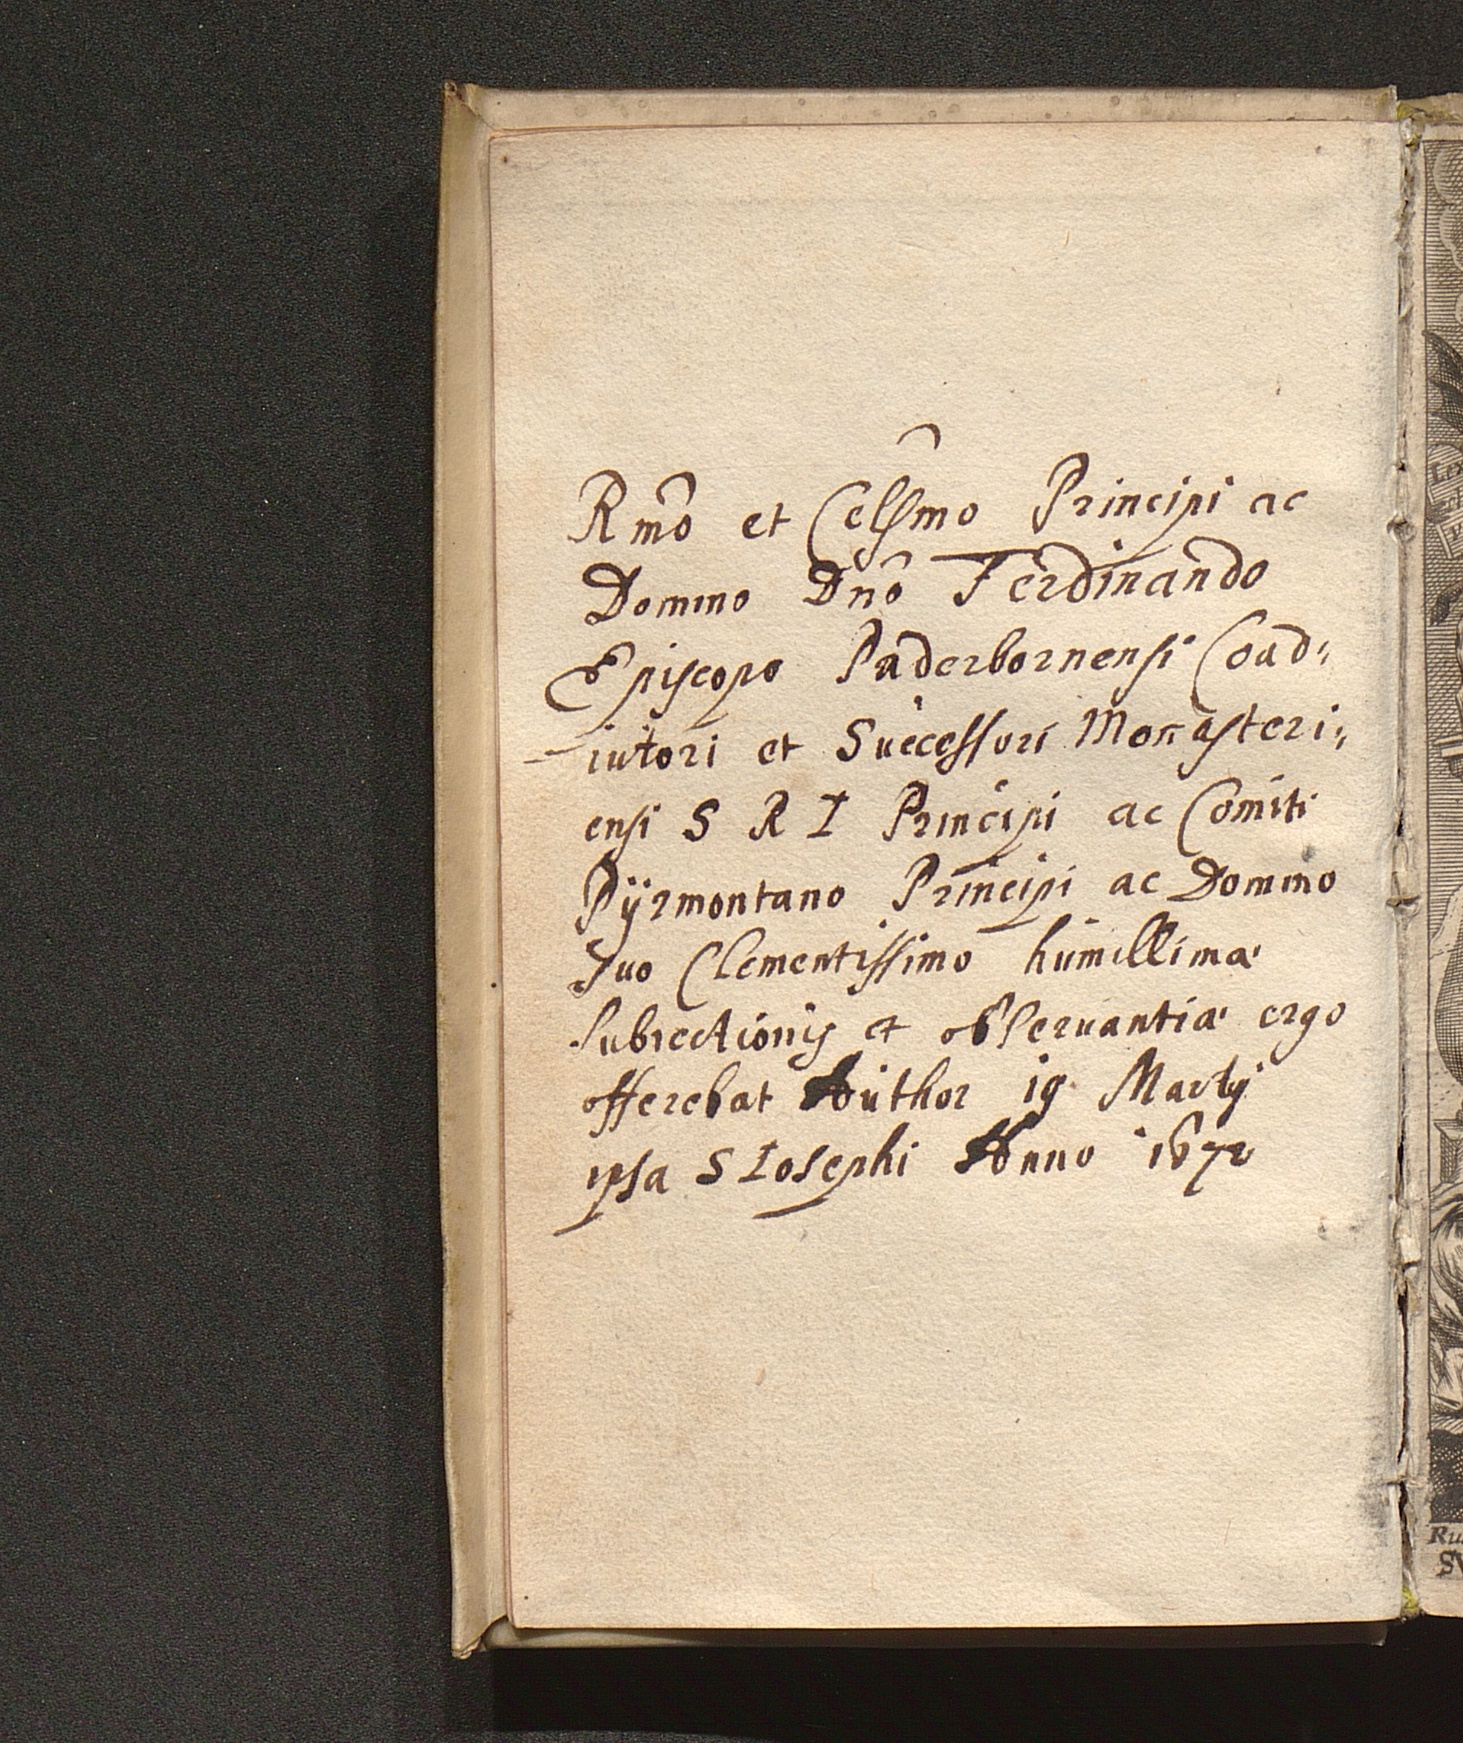 Rmô et Celssmo Principi ac
Domino Dnô Ferdinando
Episcopo Paderbornensi Coad⸗
iutori et Successori Monasteri⸗
ensi S R I Principi ac Comiti
Pÿrmontano Principi ac Domino
Suo Clementissimo humillimæ
Subiectionis et obseruantiæ ergo
offerebat Author 19 Martij
ipsa S Iosephi Anno 1672
Ru
SV